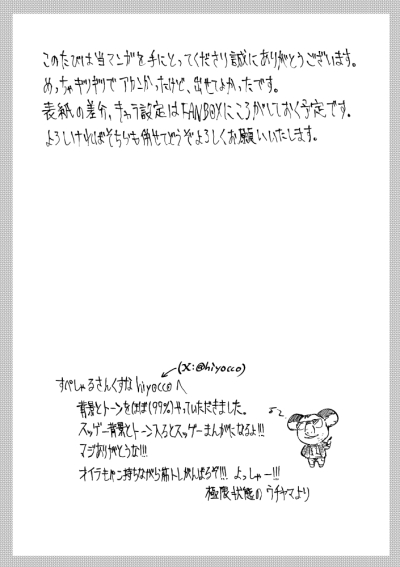 このたびは当マンガを手にとってくださり誠にありがとうございます。
めっちゃギリギリでアカンかったけど、出せてよかったです。
表紙の差分、キャラ設定はFANBOXにころがしておく予定です。
よろしければそちらも併せてどうぞよろしくお願いいたします。
(X:@hiyocco)
すぺしゃるさんくすな hiyoccoへ
背景とトーンをほぼ(99%)やっていただきました。
スッゲー背景とトーン入るとスッゲーまんがになるよ!!!
マジありがとうな!!!
オイラもペン持ちながら筋トレがんばろ!!! よっしゃー!!!
極限状態のウチヤマより